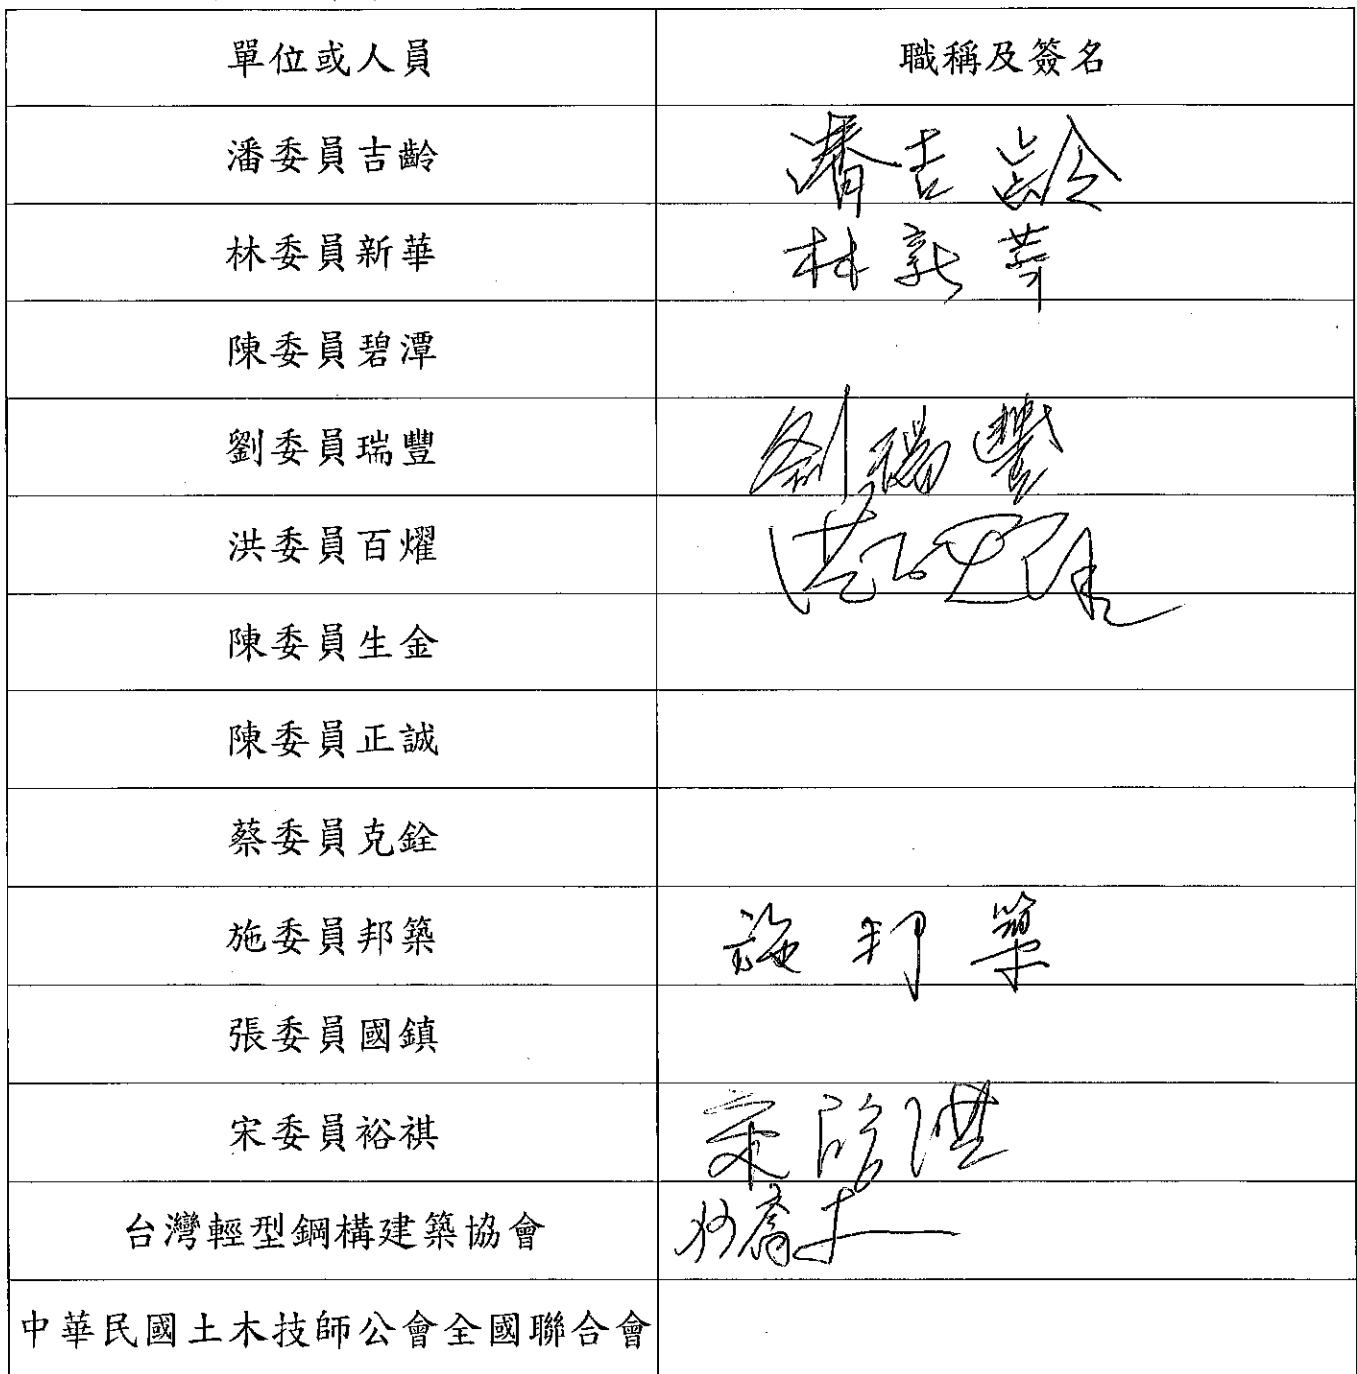 單位或人員 職稱及簽名
潘委員吉齡 潘吉齡
林委員新華 林新華
陳委員碧潭
劉委員瑞豐 劉瑞豐
洪委員百燿 洪百燿
陳委員生金
陳委員正誠
蔡委員克銓
施委員邦築 施邦築
張委員國鎮
宋委員裕祺 宋裕祺
台灣輕型鋼構建築協會
中華民國土木技師公會全國聯合會